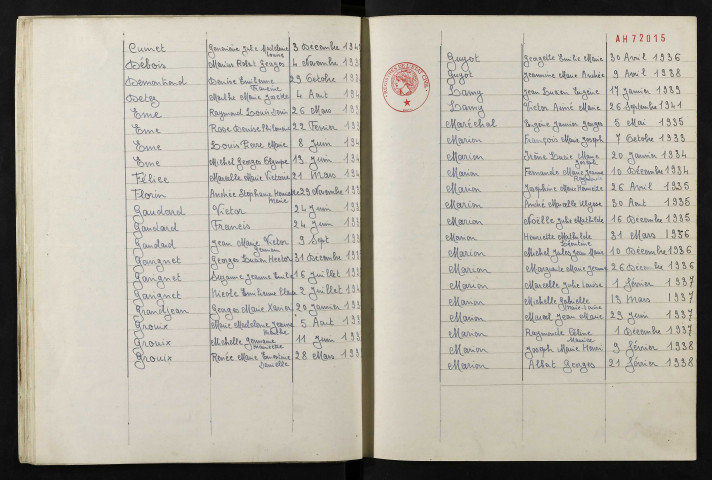 Cumet Geneviève Julie Madeleine 3 Décembre 194
Louise
Débois Marius Robert Georges 4 Novembre 193
Demontrond Denise Emilienne 29 Octobre 193
Francine
Deto Marthe Marie Josèphe 4 Aout 193
Eme Raymond Louis Denis 26 Mars 193
Eme Rose Denise Philomène 22 Février 193
Eme Louis Pierre Marie 8 Juin 194
Eme Michel Georges Olympe 13 Juin 194
Félice Marcelle Marie Victorine 21 Mars 194
Florin Andrée Stéphanie Henriette 29 Novembre 193
Marie
Gaudard Victor 24 Juin 193
Gaudard Francis 24 Juin 193
Gaudard Jean Marie Victor 9 Sept 193
Germain
Gangnet Georges Lucien Hector 31 Décembre 193
Gangnet Suzanne Jeanne Emilie 16 Juillet 193
Gangnet Nicole Emilienne Clara 2 Juillet 194
Grandjean Georges Marie Xavier 20 Janvier 193
Groux Marie Madeleine Jeanne 5 Aout 193
Mathilde
Groux Michelle Germaine 11 Juin 193
Henriette
Groux Renée Marie Emilienne 28 Mars 193
Danielle
AH72015
Guyot Georgette Emilie Marie 30 Avril 1936
Guyot Jeannine Marie Andrée 9 Avril 1938
Lamy Jean Lucien Eugène 17 Janvier 1939
Lamy Victor Aimé Marie 26 Septembre 1941
Maréchal Eugène Janvier Georges 5 Mai 1935
Marion François Marie Joseph 7 Octobre 1933
Marion Irène Lucie Marie 20 Janvier 1934
Joseph
Marion Fernande Marie Jeanne 10 Décembre 1934
Raymonde
Marion Joséphine Marie Danielle 26 Avril 1935
Marion André Marcelle Ulysse 30 Aout 1935
Marion Noëlle Julie Mathilde 16 Décembre 1935
Marion Henriette Mathilde 31 Mars 1936
Léontine
Marion Michel Jules Jean Marie 10 Décembre 1936
Marion Marguerite Marie Jeanne 26 Décembre 1936
Marion Marcelle Julie Louise 1 Février 1937
Marion Michelle Gabrielle 13 Mars 1937
Marie-Louise
Marion Marcel Jean Marie 29 Juin 1937
Marion Raymonde Céline 1 Décembre 1937
Maurice
Marion Joseph Marie Henri 9 Février 1938
Marion Albert Georges 21 Février 1938